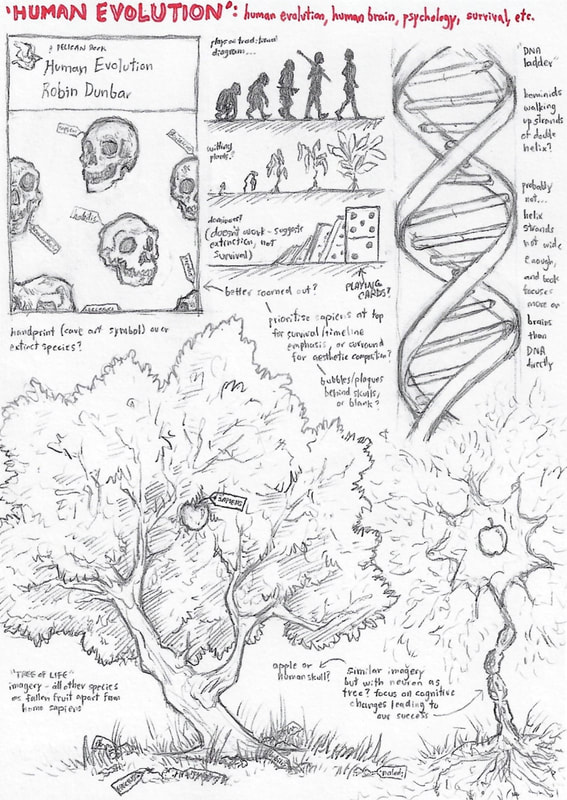 "HUMAN EVOLUTION": human evolution, human brain, psychology, survival, etc.
A PELICAN BOOK
Human Evolution
Robin Dunbar
sapiens
plays on traditional
diagram...
withing
plants.
dominoes?
(doesn't work - suggests
extinction, not
survival)
PLAYING
CARDS?
better zoomed out?
handprint (cave art symbol) over
extinct species?
prioritise sapiens at top
for survival/timeline
emphasis, or surround
for aesthetic composition?
bubbles/plaques
behind skulls,
or blank?
"DNA
ladder"
hominids
walking
up strands
of double
helix?
probably
not...
helix
strands
not wide
enough,
and book
focuses
more on
brains
than
DNA
directly
SAPIENS
"TREE OF LIFE"
imagery - all other species
as fallen fruit apart from
homo sapiens
apple or
human skull?
similar imagery
but with neuron as
tree? focus on cognitive
changes leading to
our success